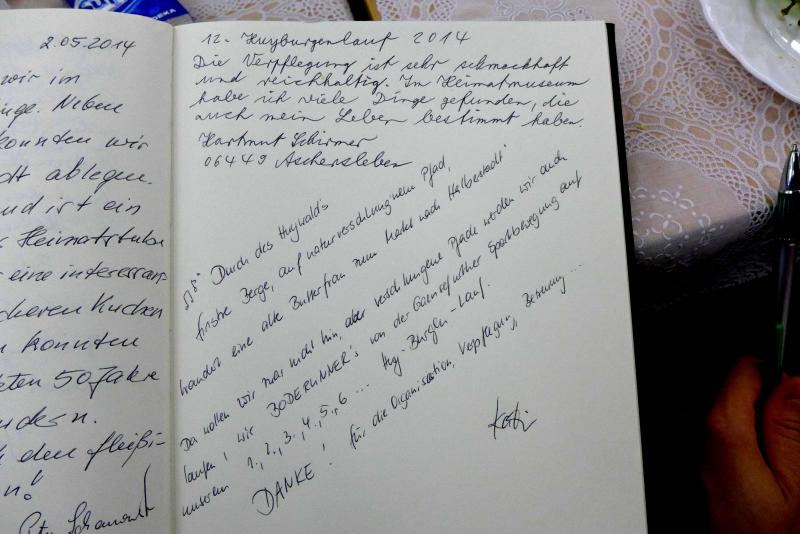 2.05.2014
wir im
nge. Neben
konnten wir
dt ablegen.
nd ist ein
Heimatstube
eine interessan-
cheren Kuchen
konnten
ten 50 Jahre
ndern.
den fleißi-
n!
12. Huyburgenlauf 2014
Die Verpflegung ist sehr schmackhaft
und reichhaltig. Im Heimatmuseum
habe ich viele Dinge gefunden, die
auch mein Leben bestimmt haben.
Hartmut Schirmer
06449 Aschersleben
Durch des Huywald's
finstre Berge, auf naturverschlungnem Pfad,
wandert eine alte Butterfrau zum Markt nach Halberstadt"
Da wollen wir zwar nicht hin, aber verschlungene Pfade werden wir auch
laufen! Wir BODERUNNER's von der Sportbewegung auf
unserem 1., 2., 3., 4., 5., 6 ... Huy-Burgen-Lauf.
DANKE! für die Organisation, Verpflegung, Betreuung ...
Kati